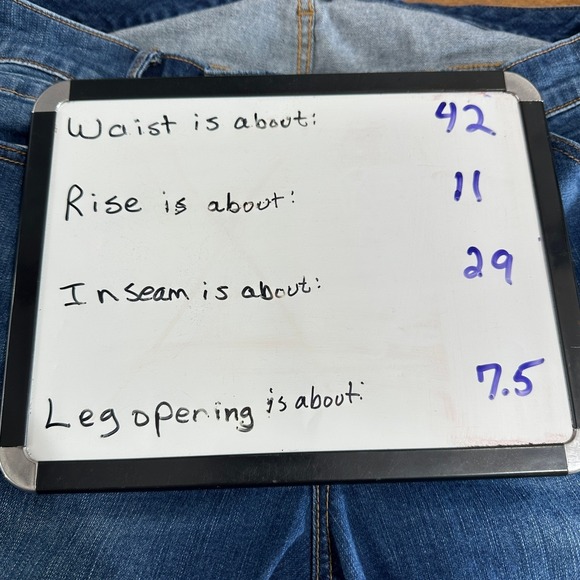 Waist is about: 42
Rise is about: 11
Inseam is about: 29
Leg opening is about: 7.5